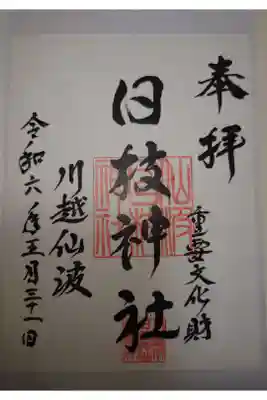 奉拝
重要文化財
日枝神社
川越仙波
令和六年三月三十一日